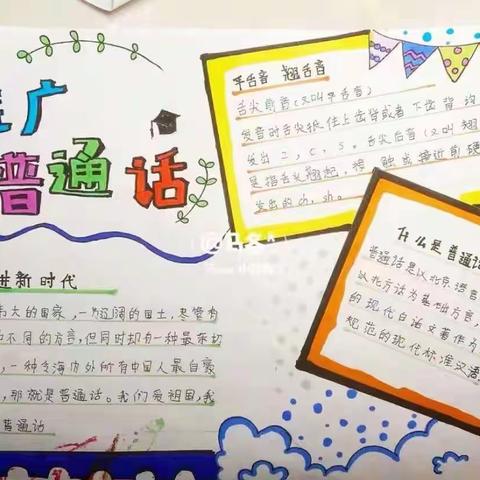 推广
普通话
平舌音 翘舌音
舌尖前音(又叫平舌音)
发音时舌尖抵住上齿背或者下齿背
发出z,c,s。舌尖后音(又叫翘
是指舌尖翘起,接触或接近前硬
发出的ch,sh。
什么是普通话
普通话是以北京语音
以北方话为基础方言,
的现代白话文著作为
规范的现代标准汉语
进新时代
大的国家,一 辽阔的国土,
不同的方言,但同时却有一种最
,一种令海内外所有中国人最自豪
,那就是普通话。我们爱祖国,我
普通话